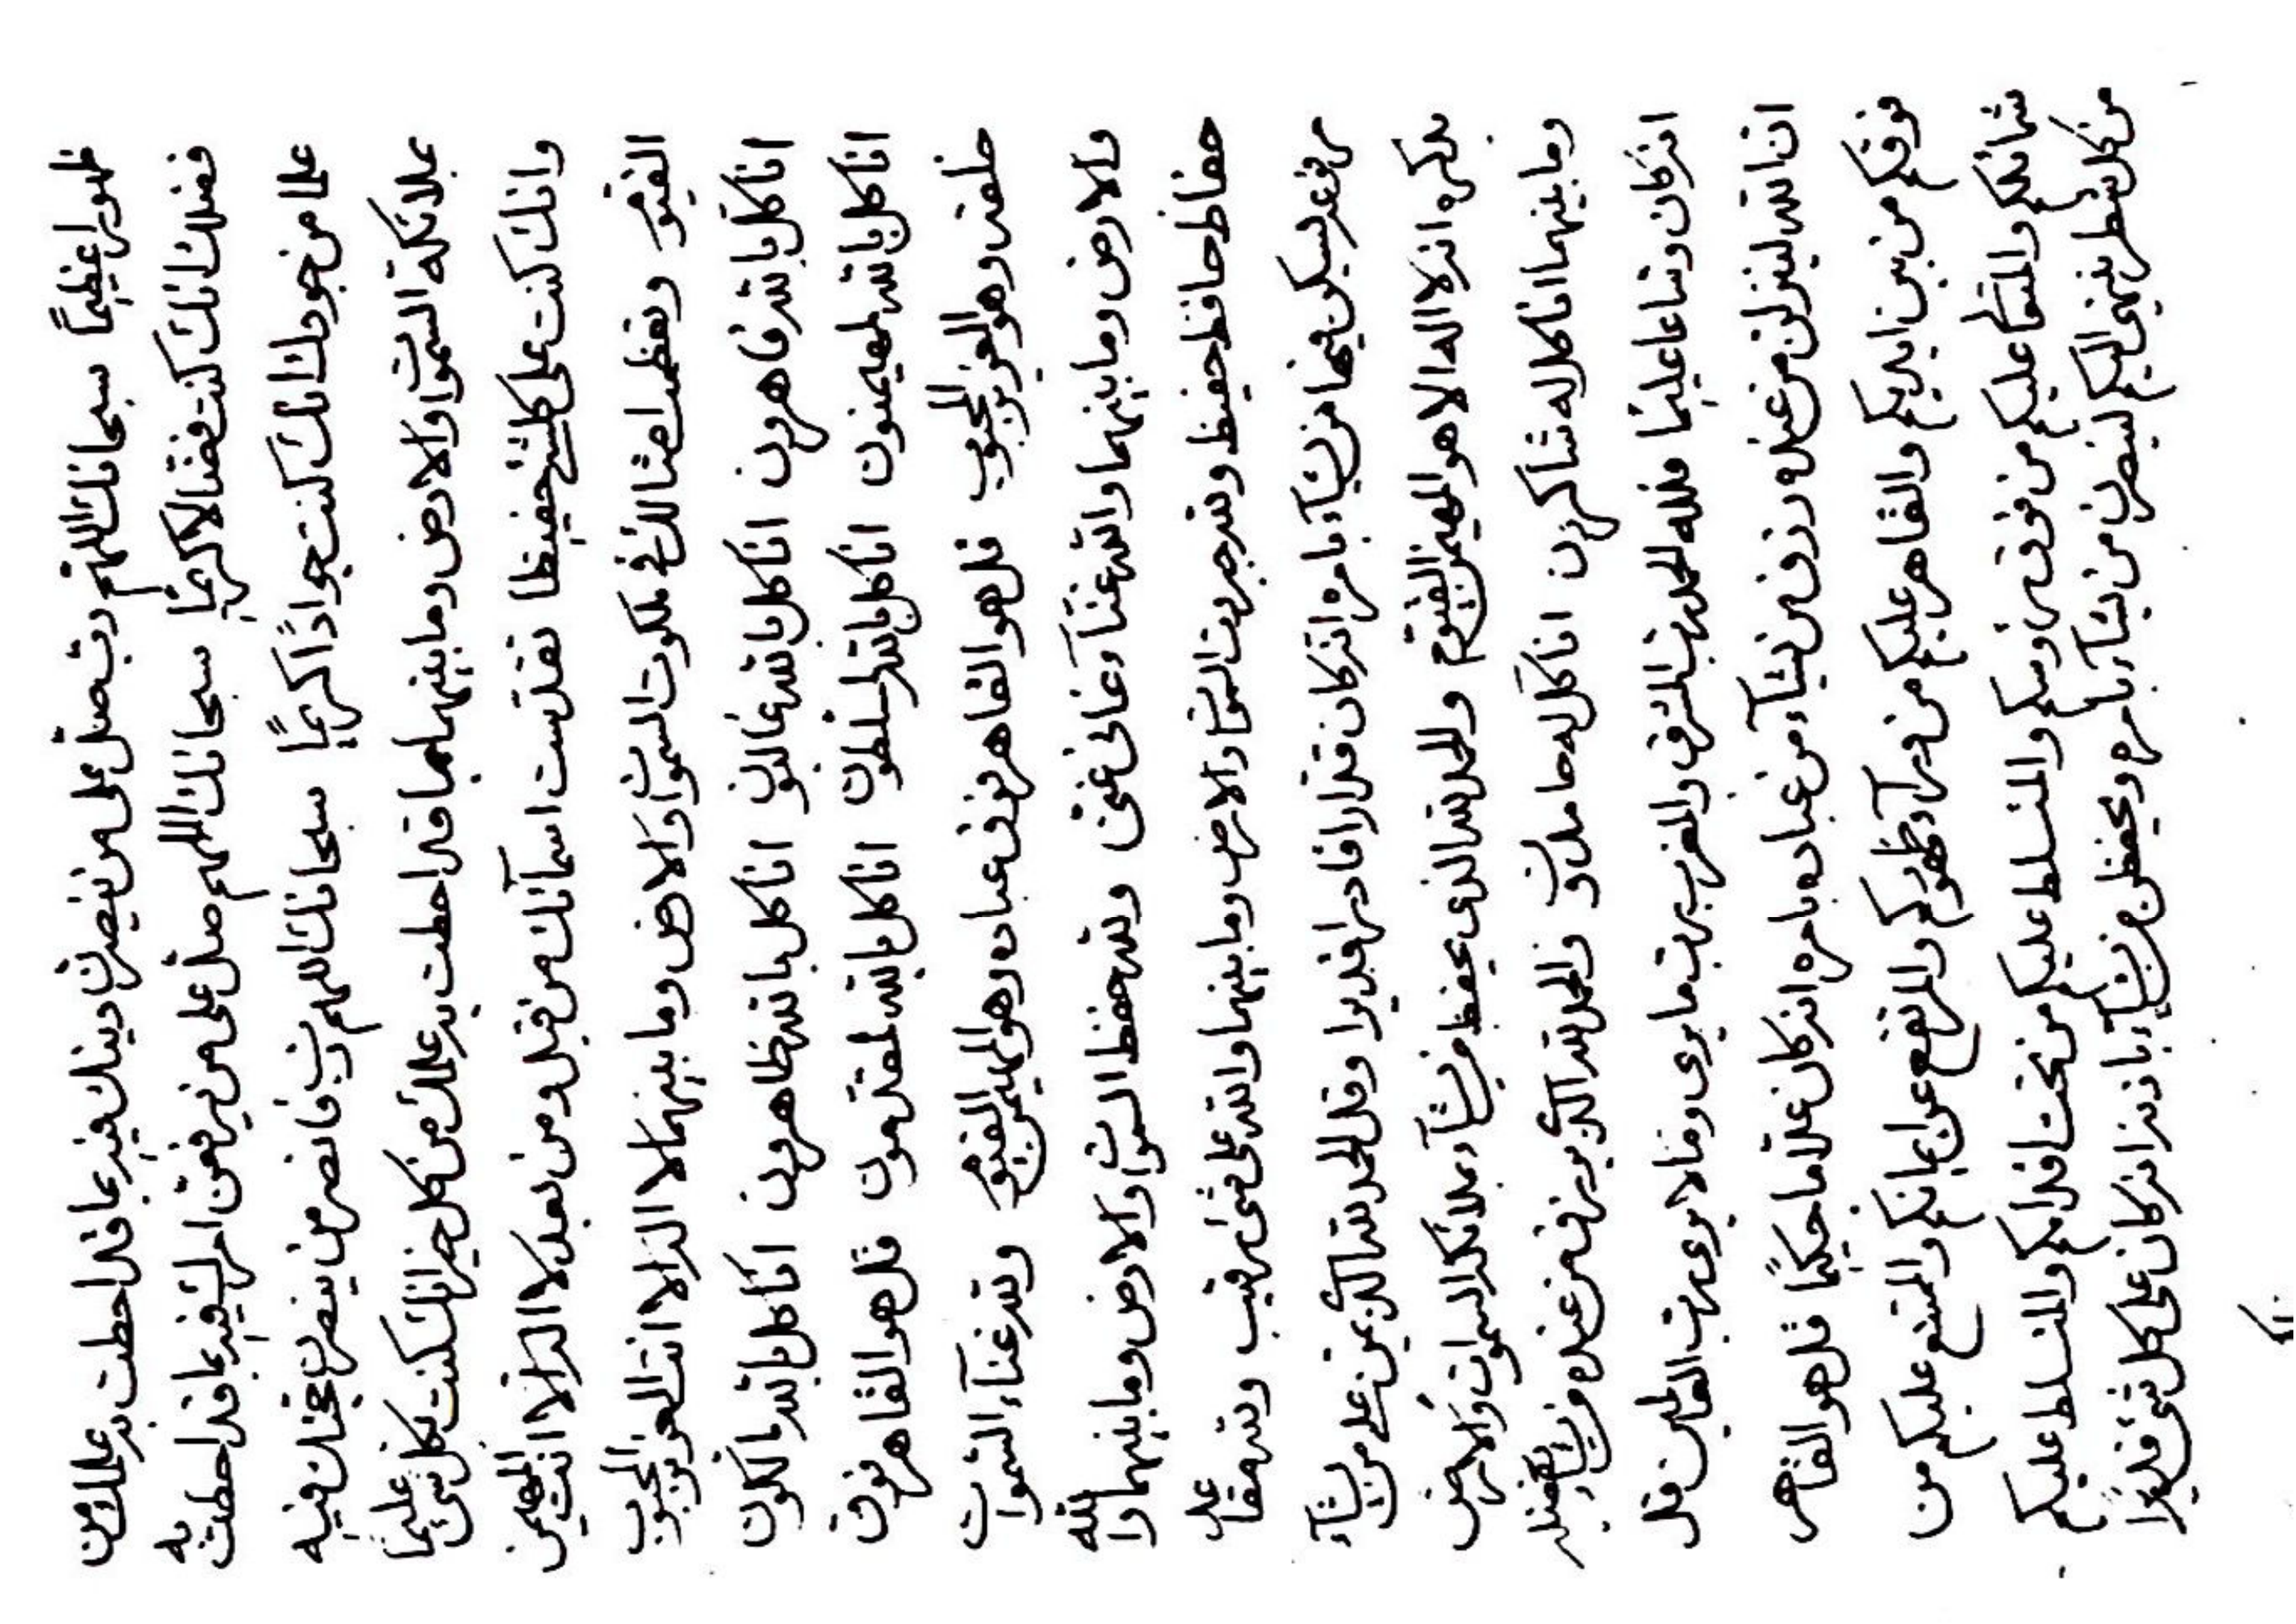 ظهورا عظيمًا سبحانك اللهم رب صل على من ينصرن دينك فيه بما قد احطت به علمك من
فضلك انك كنت فضالا كريمًا سبحانك اللهم صل على من يرفعن امرك فيه بما قد احطت به
علما من جودك انك كنت جوادًا كريمًا سبحانك اللهم رب فانصر من ينصرن حجتك فيه
بملائكة السموات والارض وما بينهما بما قد احطت به علمك من كل خير انك كنت بكل شئ عليما
وانك كنت على كل شئ حفيظا تقدست اسمآئك من قبل ومن بعد لا اله الا انت المهيمن
القيوم وتعظمت امثالك في ملكوت السموات والارض وما بينهما لا اله الا انت العزيز المحبوب
انا كل بالله قاهرون انا كل بالله غالبون انا كل بالله ظاهرون انا كل بالله مالكون
انا كل بالله لمهيمنون انا كل بالله لمسلطون انا كل بالله لمقتدرون قل هو القاهر فوق
خلقه وهو العزيز المحبوب قل هو القاهر فوق عباده وهو المهيمن القيوم ولله غنآء السموات
والارض وما بينهما والله غنآء غانى غنى ولله حفظ السموات والارض وما بينهما والله
حفاظ حافظ حفيظ ولله جبروت السموات والارض وما بينهما والله على كل شئ رقيب ولله مقاعد
مرفوعة ليسكن فيها من يشآء بامره انه كان قدارا قادرا قديرا وقل الحمد لله الذى يمن على من يشآء
بذكره انه لا اله الا هو المهيمن القيوم والحمد لله الذى يحفظ من يشآء بملائكة السموات والارض
وما بينهما انا كل له شاكرين انا كل له حامدون والحمد لله الذى يرزق من عنده من يشآء بفضله
انه كان وساعا عليما فلله الحمد رب المشرق والمغرب رب ما يرى وما لا يرى رب العالمين قل
ان الله لينزلن من عنده رزق من يشآء من عباده بامره انه كان علاما حكيمًا قل هو القاهر
فوقكم من بين ايديكم والقاهر عليكم من ورآء ظهوركم والمرتفع عن ايمانكم والممتنع عليكم من
شمائلكم والمتعالى عليكم من فوق رؤسكم والمتسلط عليكم من تحت اقدامكم والمتسلط عليكم
من كل شطر ينتهى اليكم لينصرن من يشآء بامره ويحفظن من يشآء باذنه انه كان على كل شئ قديرًا